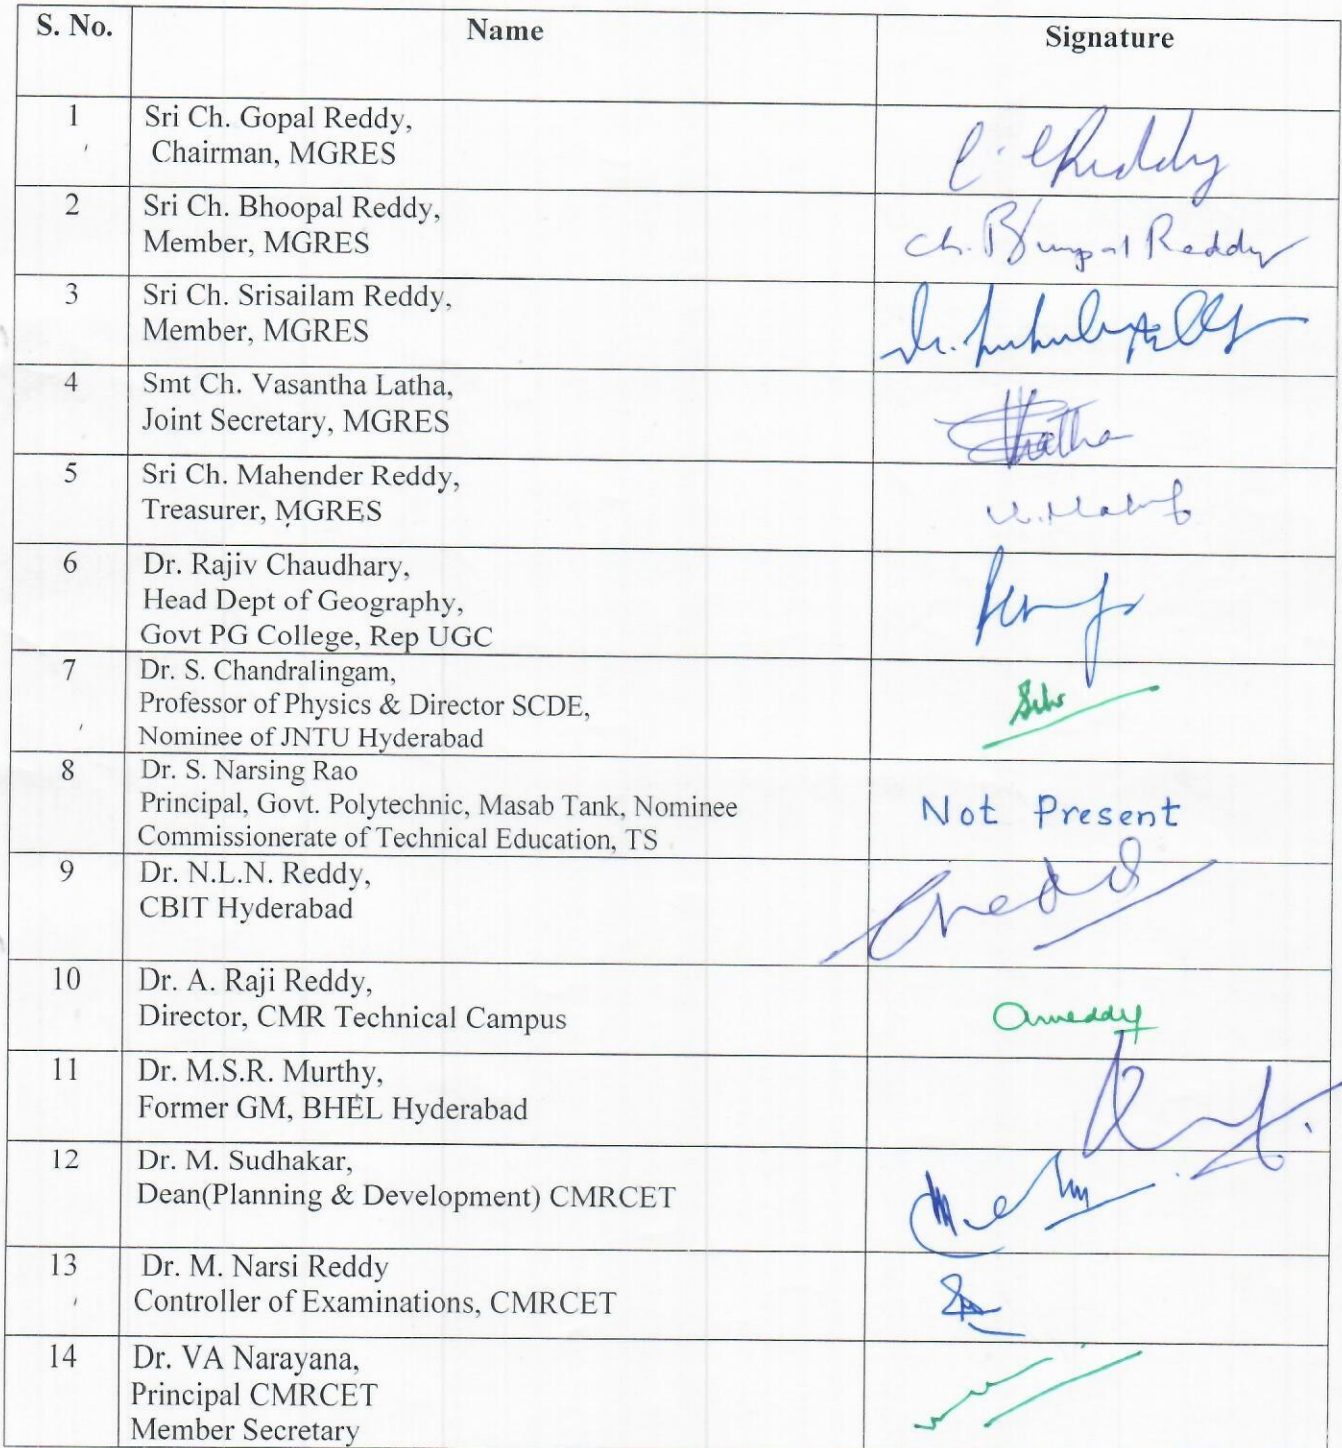 S. No. Name Signature
1 Sri Ch. Gopal Reddy,
Chairman, MGRES
2 Sri Ch. Bhoopal Reddy,
Member, MGRES
Reddy
3 Sri Ch. Srisailam Reddy,
Member, MGRES
4 Smt Ch. Vasantha Latha,
Joint Secretary, MGRES
5 Sri Ch. Mahender Reddy,
Treasurer, MGRES
6 Dr. Rajiv Chaudhary,
Head Dept of Geography,
Govt PG College, Rep UGC
7 Dr. S. Chandralingam,
Professor of Physics & Director SCDE,
Nominee of JNTU Hyderabad
8 Dr. S. Narsing Rao
Principal, Govt. Polytechnic, Masab Tank, Nominee
Commissionerate of Technical Education, TS
Not Present
9 Dr. N.L.N. Reddy,
CBIT Hyderabad
10 Dr. A. Raji Reddy,
Director, CMR Technical Campus
11 Dr. M.S.R. Murthy,
Former GM, BHEL Hyderabad
12 Dr. M. Sudhakar,
Dean(Planning & Development) CMRCET
13 Dr. M. Narsi Reddy
Controller of Examinations, CMRCET
14 Dr. VA Narayana,
Principal CMRCET
Member Secretary